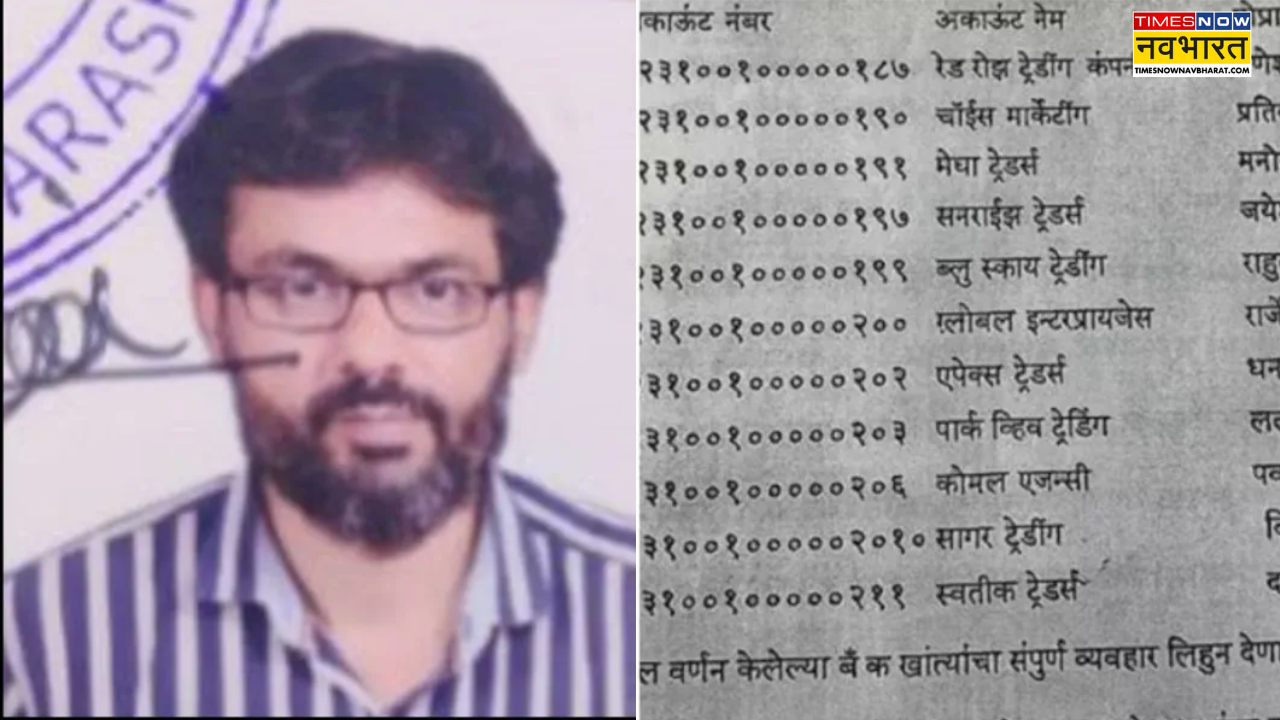 ARASH
TIMES NOW
नवभारत
TIMESNOWNAVBHARAT.COM
काऊंट नंबर अकाऊंट नेम
२३१००१०००००१८७ रेड रोझ ट्रेडींग
२३१००१०००००१९० चॉईस मार्केटींग
२३१००१०००००१९१ मेघा ट्रेडर्स
२३१००१०००००१९७ सनराईझ ट्रेडर्स
३१००१०००००१९९ ब्लु स्काय ट्रेडींग
३१००१०००००२०० ग्लोबल इन्टरप्रायजेस
३१००१०००००२०२ एपेक्स ट्रेडर्स
३१००१०००००२०३ पार्क व्हिव ट्रेडिंग
३१००१०००००२०६ कोमल एजन्सी
३१००१०००००२०१० सागर ट्रेडींग
३१००१०००००२११ स्वतीक ट्रेडर्स
ल वर्णन केलेल्या बँ क खांत्यांचा संपुर्ण व्यवहार लिहुन